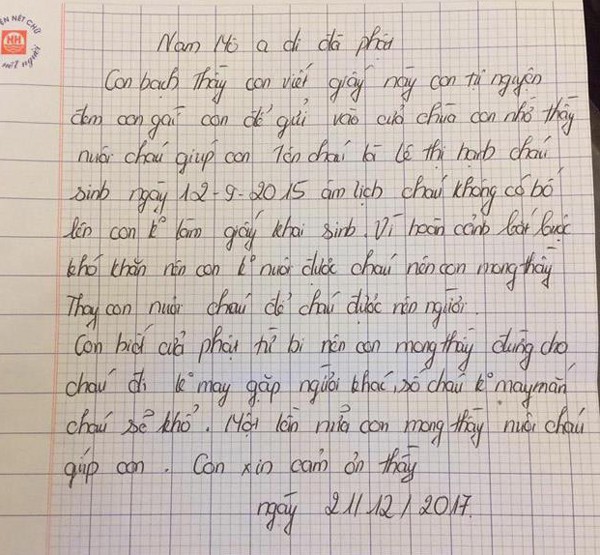 ỆN NÉT CHỮ
HH
nết người
Nam Mô a di đà phật
Con bạch thầy con viết giấy này con tự nguyện
đem con gái con đẻ gửi vào cửa chùa con nhờ thầy
nuôi cháu giúp con Tên cháu là Lê thị hạnh cháu
sinh ngày 12-9-2015 âm lịch cháu không có bố
lên con k° làm giấy khai sinh. Vì hoàn cảnh bắt buộc
khó khăn nên con k° nuôi được cháu nên con mong thầy
Thay con nuôi cháu để cháu được nên người.
Con biết cửa phật từ bi nên con mong thầy đừng cho
cháu đi k° may gặp người khác, số cháu k° may mắn
cháu sẽ khổ. Một lần nữa con mong thầy nuôi cháu
giúp con. Con xin cảm ơn thầy
ngày 21/12/2017.